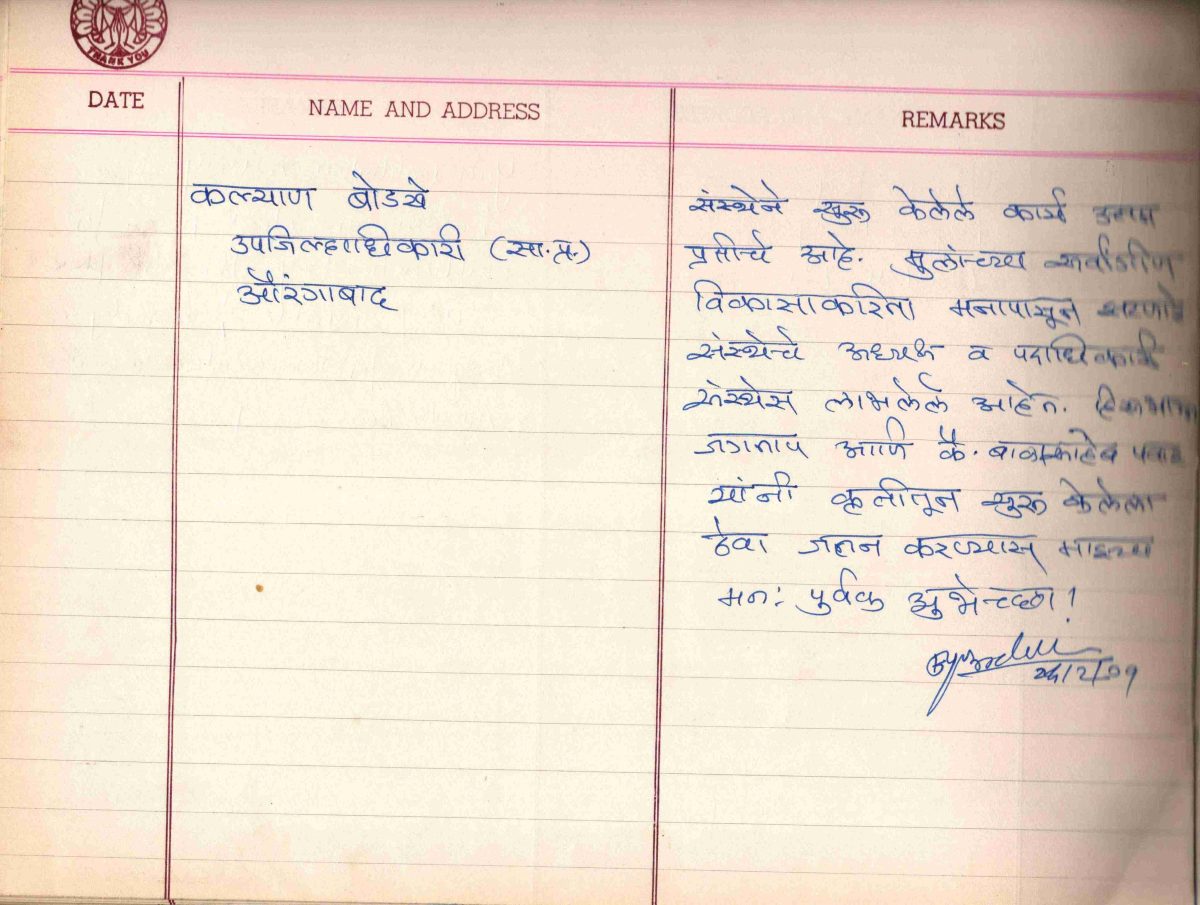 THANK YOU
DATE
NAME AND ADDRESS
REMARKS
कल्याण बोडखे
उपजिल्हाधिकारी (सा.प्र.)
औरंगाबाद
संस्थेने सुरु केलेले कार्य उत्तम
प्रतीचे आहे. मुलांच्या सर्वांगीण
विकासाकरिता मनापासून
संस्थेचे अध्यक्ष व पदाधिकारी
संस्थेस लाभलेले आहेत.
जगताप आणि कै. बाळासाहेब पवार
यांनी कृतीतून सुरु केलेला
ठेवा जतन करण्यास माझ्या
मनः पुर्वक शुभेच्छा!